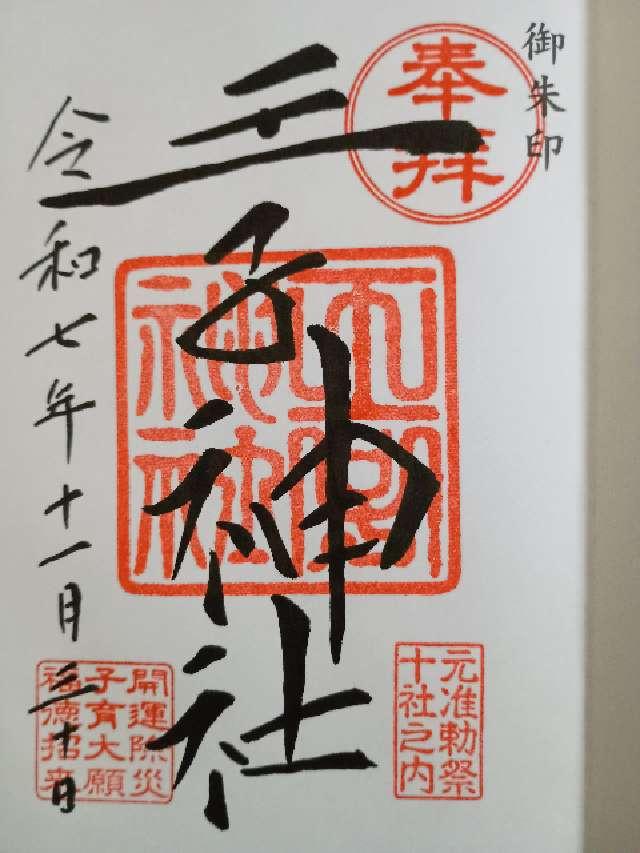 御朱印
奉拝
王子神社
元准勅祭
十社之内
開運除災
子育大願
福徳招来
令和七年十一月三十日